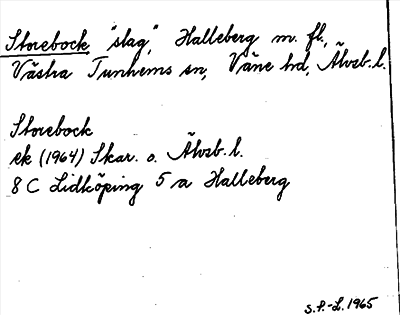 Storebock, "slag," Halleberg m. fl.,
Västra Tunhems sn, Väne hd, Älvsb. l.
Storebock
ek (1964) Skar. o. Älvsb. l.
8 C Lidköping 5 a Halleberg
S.F.-L. 1965